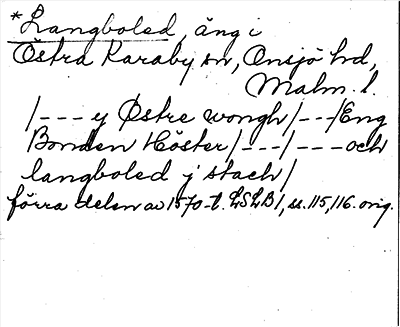 *Langboled, äng i
Östra Karaby sn, Onsjö hd,
Malm. l.
/--- y Østre wongh/---/Eng
Bonden Höster/---/---och
langboled j stach/
förra delen av 1570-t. LSLB1, ss. 115, 116. orig.